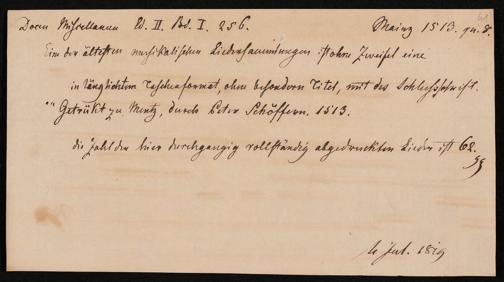 Docen Miscellaneen Bd. II. Bd. I. 256. Mainz 1513. qu. 8.
Eine der ältesten musikalischen Liedersammlungen ist ohne Zweifel eine
in länglichtem Taschenformat, ohne besondern Titel, mit der Schlußschrift.
"Getrükt zu Mentz, durch Peter Schöffern. 1513.
die Zahl der hier durchgängig vollständig abgedruckten Lieder ist 62.
Jul. 1819